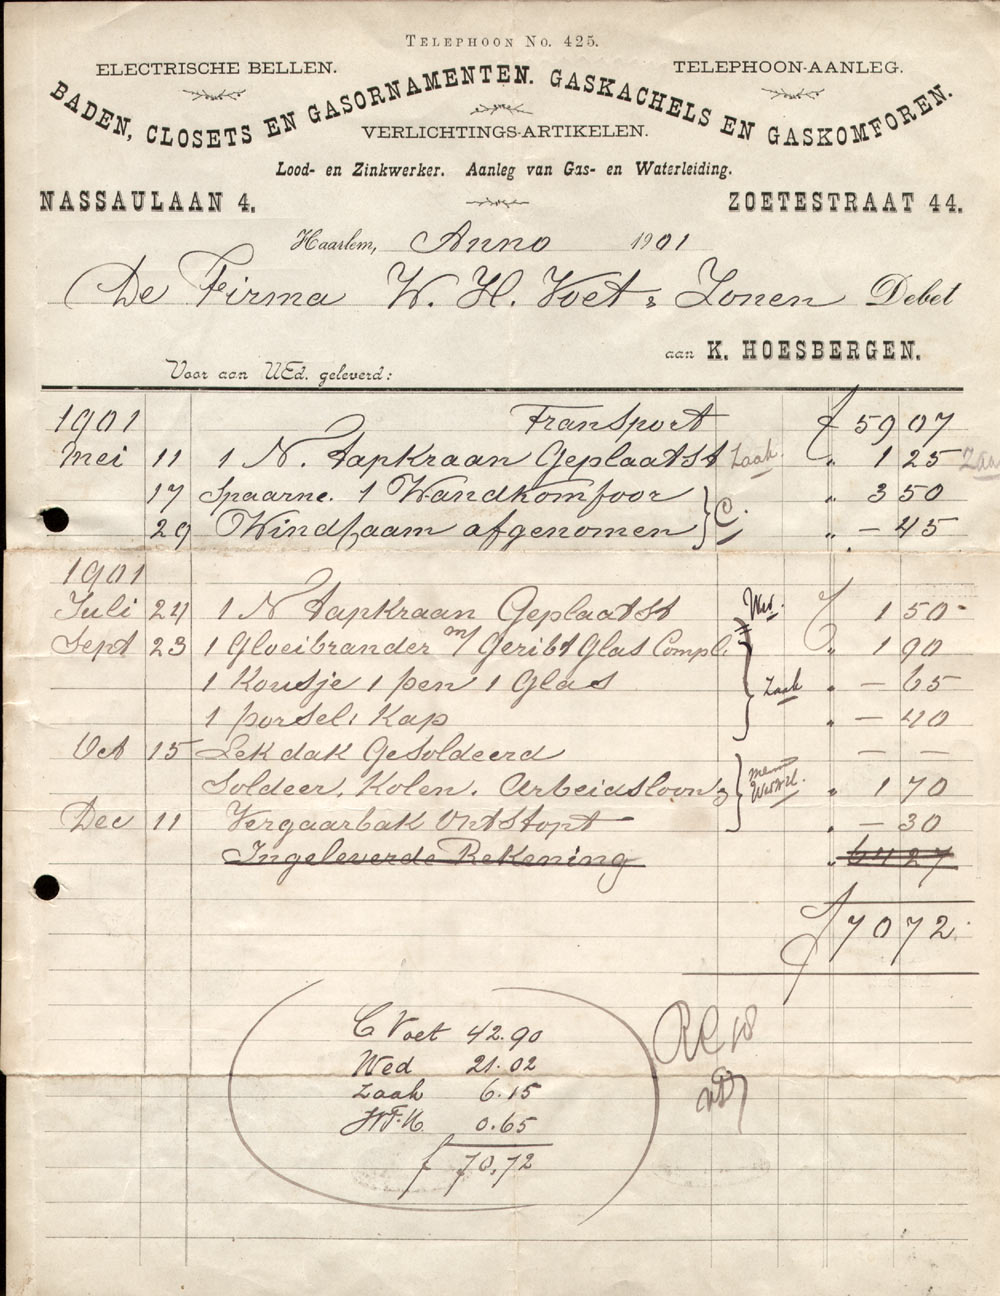 TELEPHOON NO. 425.
ELECTRISCHE BELLEN. TELEPHOON-AANLEG.
BADEN, CLOSETS EN GASORNAMENTEN. GASKACHELS EN GASKOMFOREN.
VERLICHTINGS-ARTIKELEN.
Lood- en Zinkwerker. Aanleg van Gas- en Waterleiding.
NASSAULAAN 4. ZOETESTRAAT 44.
Haarlem, Anno 1901
De Firma W. H. Voet & Zonen Debet
aan K. HOESBERGEN.
Voor aan UEd. geleverd:
1901 Transport ƒ 59 07
Mei 11 1 N. Tapkraan Geplaatst Zaak. " 1 25
17 Spaarne. 1 Wandkomfoor C. " 3 50
29 Windfaam afgenomen " – 45
1901
Juli 24 1 N Tapkraan Geplaatst Wed. ƒ 1 50
Sept 23 1 Gloeibrander m/ Geribt Glas Compl. " 1 90
1 Kousje 1 pen 1 Glas Zaak " – 65
1 porsel: Kap " – 40
Oct 15 Lek dak Gesoldeerd — —
Soldeer. Kolen. Arbeidsloon " 1 70
Dec 11 Vergaarbak Ontstopt " – 30
Ingeleverde Rekening " 64 27
ƒ 70 72
C Voet 42.90
Wed 21.02
Zaak 6.15
0.65
ƒ 70,72